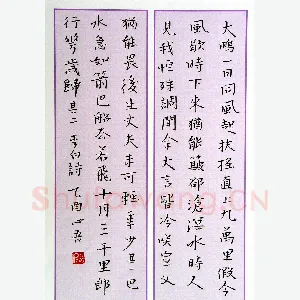 大鵬一日同風起扶摇直上九萬里假令
風歇時下來猶能簸却滄溟水時人
見我恒殊調聞余大言皆冷咲宣父
猶能畏後生丈夫未可輕年少 巴
水急如箭巴船去若飛十月三千里郎
行幾歲歸 其二 李白詩 乙酉心吾